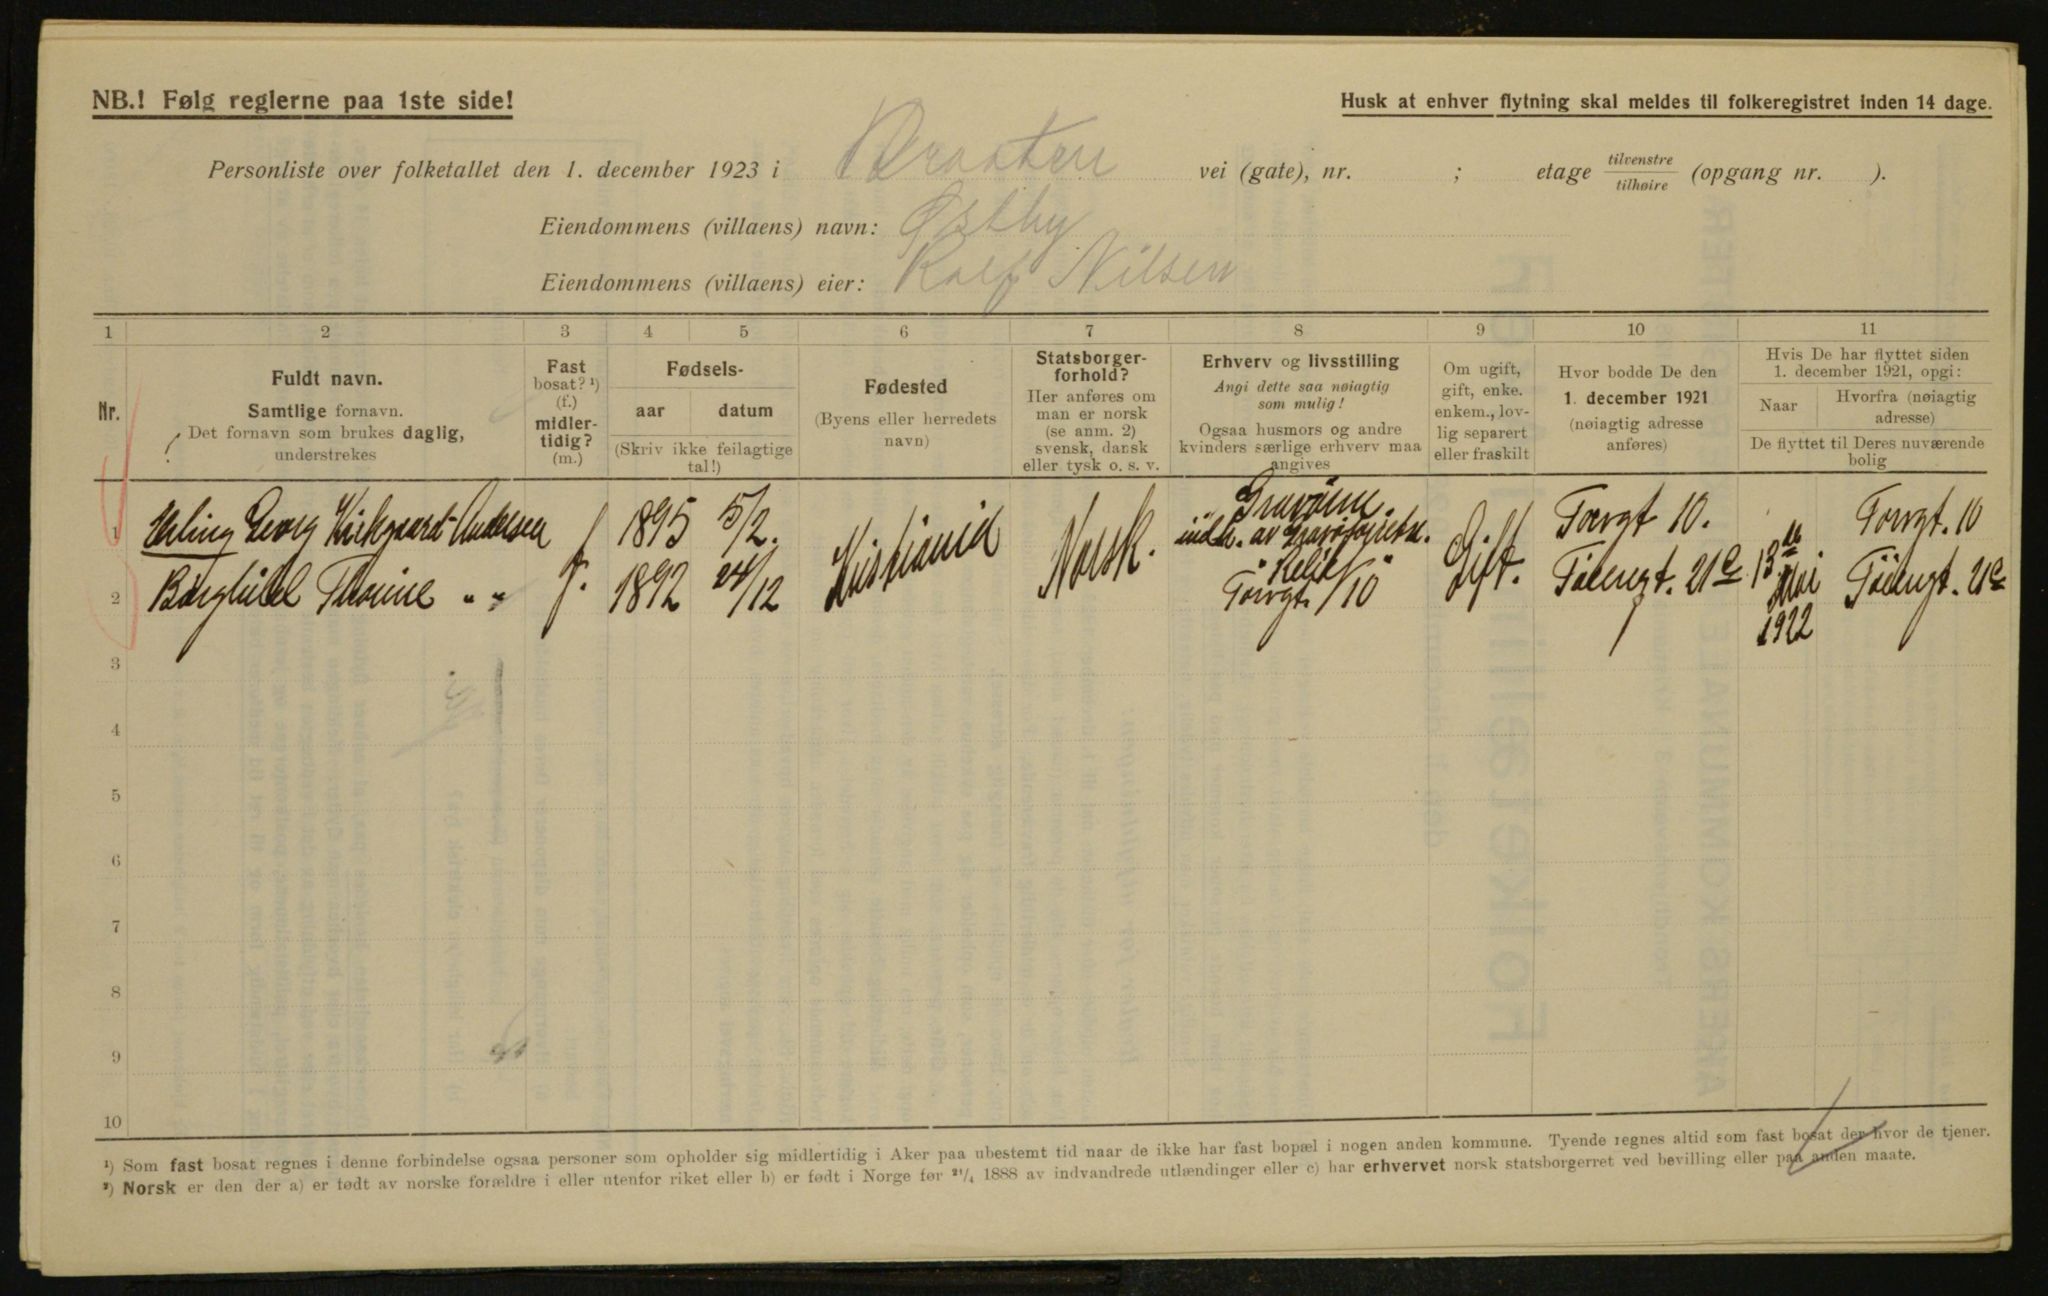 NB.! Følg reglerne paa 1ste side!
Husk at enhver flytning skal meldes til folkeregistret inden 14 dage.
Personliste over folketallet den 1. december 1923 i Braaten vei (gate), nr. ; etage tilvenstre/tilhøire (opgang nr. ).
Eiendommens (villaens) navn: Østby
Eiendommens (villaens) eier: Rolf Nilsen
1 2 3 4 5 6 7 8 9 10 11
Nr.
Fuldt navn.
Samtlige fornavn.
Det fornavn som brukes daglig,
understrekes
Fast
bosat? ¹)
(f.)
midler-
tidig?
(m.)
Fødsels-
aar datum
(Skriv ikke feilagtige
tal!)
Fødested
(Byens eller herredets
navn)
Statsborger-
forhold?
Her anføres om
man er norsk
(se anm. 2)
svensk, dansk
eller tysk o. s. v.
Erhverv og livsstilling
Angi dette saa nøiagtig
som mulig!
Ogsaa husmors og andre
kvinders særlige erhverv maa
angives
Om ugift,
gift, enke.
enkem., lov-
lig separert
eller fraskilt
Hvor bodde De den
1. december 1921
(nøiagtig adresse
anføres)
Hvis De har flyttet siden
1. december 1921, opgi:
Naar
Hvorfra (nøiagtig
adresse)
De flyttet til Deres nuværende
bolig
1 Erling Georg Kirkgaard-Andersen f. 1895 5/2. Kristiania Norsk. Gravør. Gift. Torvgt 10. Torvgt. 10
indh. av
2 Borghild Thorine " " f. 1892 24/12 Torvgt. 10 Tøiengt. 21c 13de Mai 1922 Tøiengt. 21c
3
4
5
6
7
8
9
10
¹) Som fast bosat regnes i denne forbindelse ogsaa personer som opholder sig midlertidig i Aker paa ubestemt tid naar de ikke har fast bopæl i nogen anden kommune. Tyende regnes altid som fast bosat der hvor de tjener.
²) Norsk er den der a) er født av norske forældre i eller utenfor riket eller b) er født i Norge før 21/4 1888 av indvandrede utlændinger eller c) har erhvervet norsk statsborgerret ved bevilling eller paa anden maate.